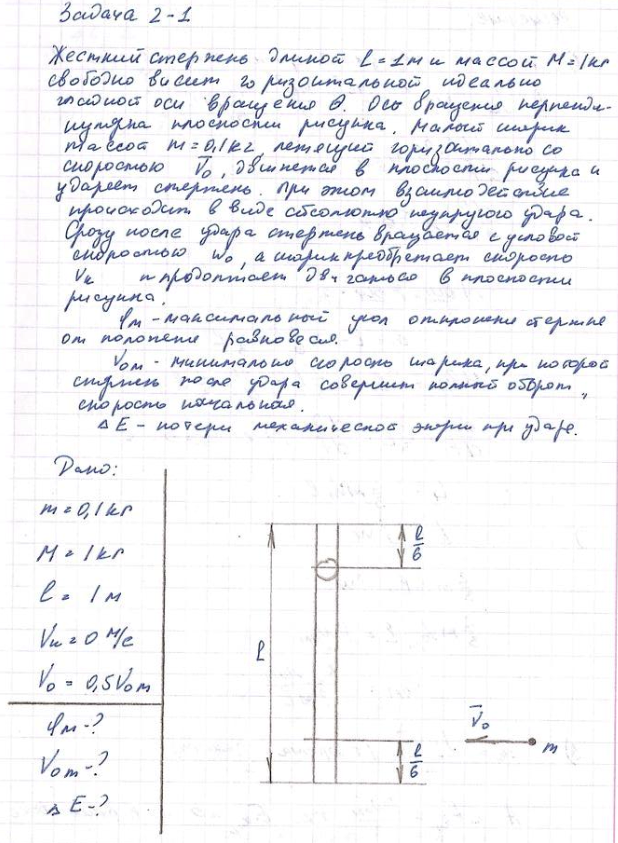 Задача 2-1
Жесткий стержень длиной l=1м и массой M=1кг
свободно висит горизонтальной идеально
гладкой оси вращения θ. Ось вращения перпенди-
кулярна плоскости рисунка. Малый шарик
массой m=0,1кг, летящий горизонтально со
скоростью V̅₀, движется в плоскости рисунка и
ударяет стержень. При этом взаимодействие
происходит в виде абсолютно неупругого удара.
Сразу после удара стержень вращается с угловой
скоростью ω₀, а шарик преобретает скорость
Vк и продолжает двигаться в плоскости
рисунка.
φм - максимальный угол отклонения стержня
от положения равновесия.
V₀м - минимальна скорость шарика, при которой
стержень после удара совершит полный оборот,
скорость начальная.
ΔE - потери механической энергии при ударе.
Дано:
m = 0,1 кг
M = 1 кг
l = 1 м
Vк = 0 м/с
V₀ = 0,5V₀м
φм - ?
V₀м - ?
ΔE - ?
l/6
l
V̅₀
m
l/6